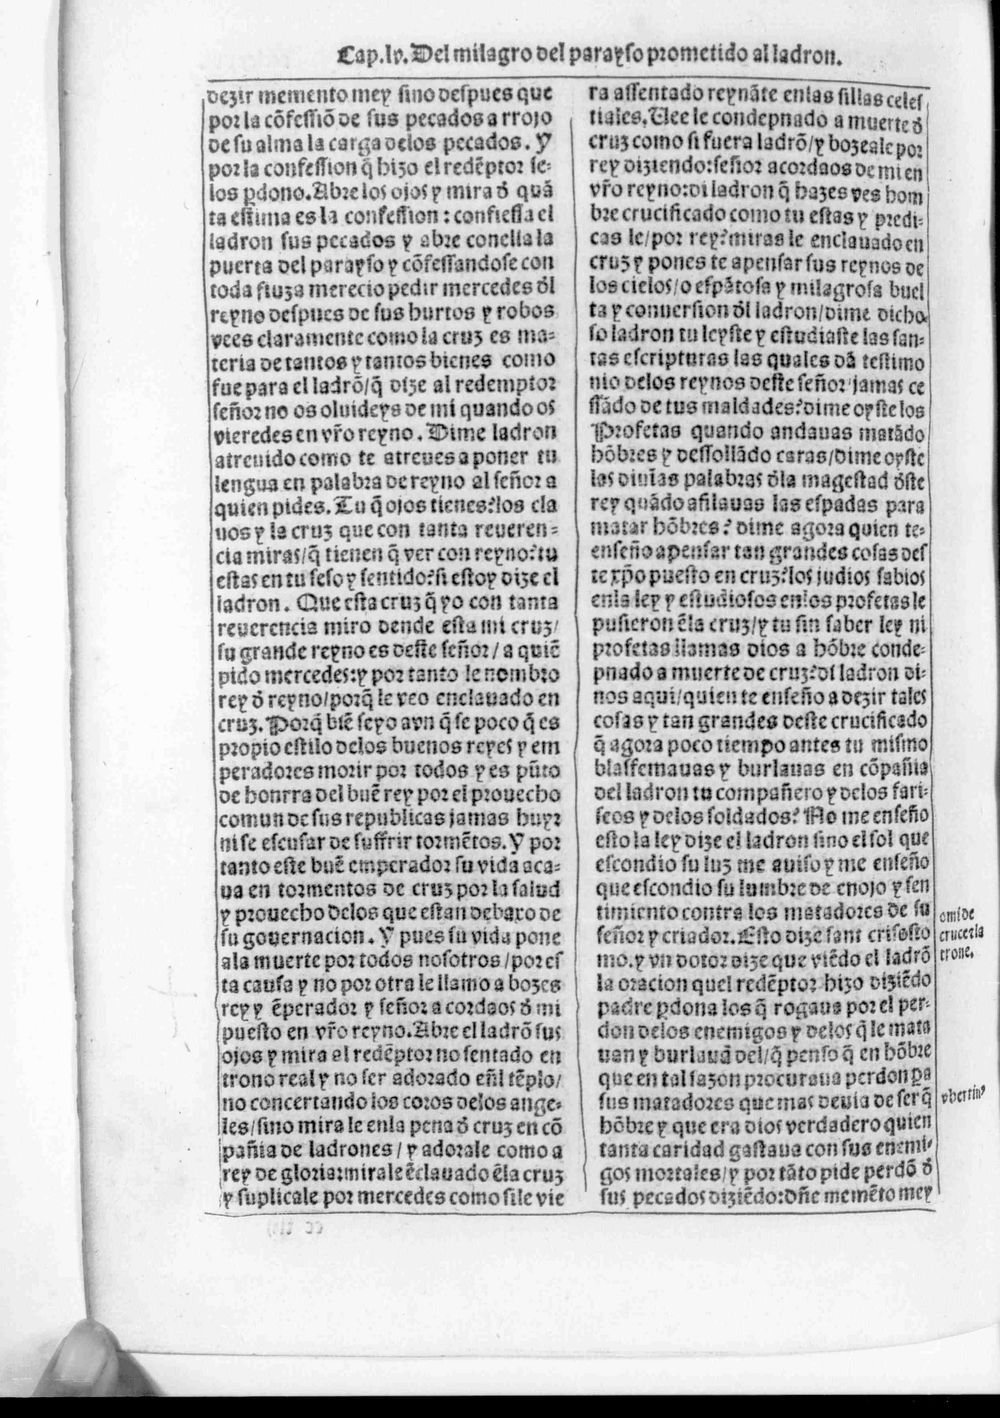 Cap.lv. Del milagro del parayso prometido al ladron.
dezir memento mey sino despues que
por la cõfessiõ de sus pecados arrojo
de su alma la carga delos pecados. Y
por la confession q̃ hizo el redẽptor se-
los ꝑdono. Abre los ojos y mira õ quã
ta estima es la confession: confiessa el
ladron sus pecados y abre conella la
puerta del parayso y cõfessandose con
toda fiuza merecio pedir mercedes dl̃
reyno despues de sus hurtos y robos
vees claramente como la cruz es ma-
teria de tantos y tantos bienes como
fue para el ladrõ/q̃ dize al redemptor
señor no os oluideys de mi quando os
vieredes en vr̃o reyno. Dime ladron
atreuido como te atreues a poner tu
lengua en palabra de reyno al señor a
quien pides. Tu q̃ ojos tienes? los cla
uos y la cruz que con tanta reueren-
cia miras/q̃ tienen q̃ ver con reyno? tu
estas en tu seso y sentido? si estoy dize el
ladron. Que esta cruz q̃ yo con tanta
reuerencia miro dende esta mi cruz/
su grande reyno es deste señor/a quiẽ
pido mercedes: y por tanto le nombro
rey õ reyno/porq̃ le veo enclauado en
cruz. Porq̃ biẽ se yo avn q̃ se poco q̃ es
propio estilo delos buenos reyes y em
peradores morir por todos y es pũto
de honrra del buẽ rey por el prouecho
comun de sus republicas jamas huyr
ni se escusar de suffrir tormẽtos. Y por
tanto este buẽ emperador su vida aca-
ua en tormentos de cruz por la salud
y prouecho delos que estan debaxo de
su gouernacion. Y pues su vida pone
ala muerte por todos nosotros/por es
ta causa y no por otra le llamo a bozes
rey y ẽperador y señor acordaos õ mi
puesto en vr̃o reyno. Abre el ladrõ sus
ojos y mira al redẽptor no sentado en
trono real y no ser adorado eñl tẽplo/
no concertando los coros delos ange-
les/sino mirale enla pena õ cruz en cõ
pañia de ladrones/y adorale como a
rey de gloria: mirale ẽclauado ẽla cruz
y suplicale por mercedes como si le vie
ra assentado reynãte enlas sillas celes
tiales. Uee le condepnado a muerte õ
cruz como si fuera ladrõ/y bozeale por
rey diziendo: señor acordaos de mi en
vr̃o reyno: di ladron q̃ hazes ves hom
bre crucificado como tu estas y predi-
cas le/por rey? miras le enclauado en
cruz y pones te apensar sus reynos de
los cielos/o espãtosa y milagrosa buel
ta y conuersion dl̃ ladron/dime dicho
so ladron tu leyste y estudiaste las san-
tas escripturas las quales dã testimo
nio delos reynos deste señor jamas ce
ssãdo de tus maldades? dime oyste los
Profetas quando andauas matãdo
hõbres y dessollãdo caras/dime oyste
las diuiñs palabras dla magestad õste
rey quãdo afilauas las espadas para
matar hõbres? dime agora quien te-
enseño apensar tan grandes cosas des
te xp̃o puesto en cruz? los judios sabios
enla ley y estudiosos enlos profetas le
pusieron ẽla cruz/y tu sin saber ley ni
profetas llamas dios a hõbre conde-
pnado a muerte de cruz? di ladron di-
nos aqui/quien te enseño a dezir tales
cosas y tan grandes deste crucificado
q̃ agora poco tiempo antes tu mismo
blasfemauas y burlauas en cõpañia
del ladron tu compañero y delos fari-
seos y delos soldados? No me enseño
esto la ley dize el ladron sino el sol que
escondio su luz me auiso y me enseño
que escondio su lumbre de enojo y sen
timiento contra los matadores de su
señor y criador. Esto dize sant crisosto
mo. y vn dotor dize que viẽdo el ladrõ
la oracion quel redẽptor hizo diziẽdo
padre ꝑdona los q̃ rogaua por el per-
don delos enemigos y delos q̃ le mata
uan y burlauã del/q̃ penso q̃ en hõbre
que en tal sazon procuraua perdon ꝑa
sus matadores que mas deuia de ser q̃
hõbre y que era dios verdadero quien
tanta caridad gastaua con sus enemi-
gos mortales/y por tãto pide perdõ õ
sus pecados diziẽdo: dñe memẽto mey
omi de
crucetla
trone.
vbertin⁹